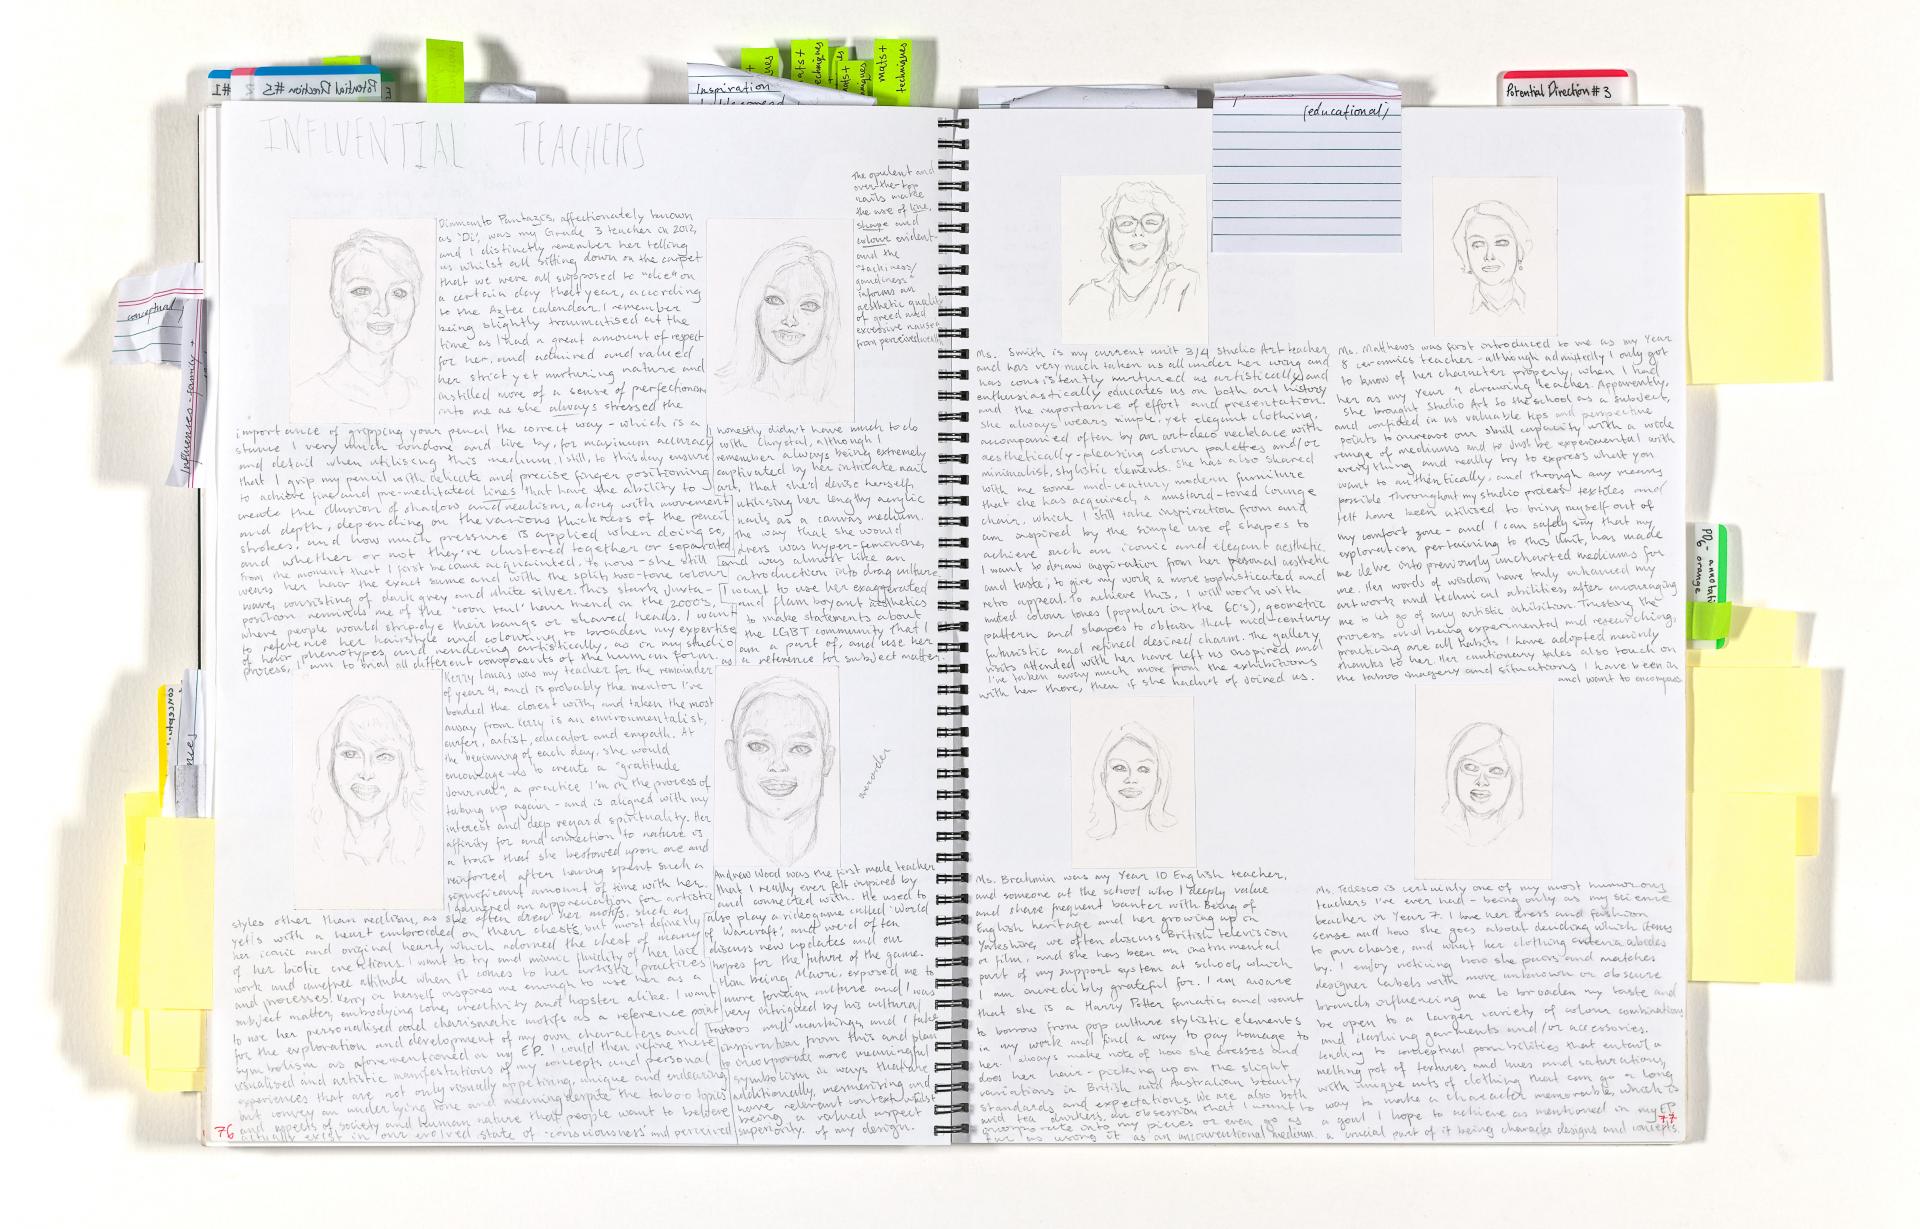 Potential Direction #5
#1
Inspiration
mats+
techniques
Potential Direction #3
(educational)
conceptual
Influences - family +
INFLUENTIAL TEACHERS
Diamanto Pantazis, affectionately known
as 'Di', was my Grade 3 teacher in 2012,
and I distinctly remember her telling
us whilst all sitting down on the carpet
that we were all supposed to "die" on
a certain day that year, according
to the Aztec calendar. I remember
being slightly traumatised at the
time as I had a great amount of respect
for her, and admired and valued
her strict yet nurturing nature and
instilled more of a sense of perfectionism
onto me as she always stressed the
importance of gripping your pencil the correct way - which is a
stance I very much condone and live by, for maximum accuracy
and detail when utilising this medium. I still, to this day ensure
that I grip my pencil with delicate and precise finger positioning
to achieve fine and pre-meditated lines that have the ability to
create the illusion of shadow and realism, along with movement
and depth, depending on the various thickness of the pencil
strokes, and how much pressure is applied when doing so,
and whether or not they're clustered together or separated
from the moment that I first became acquainted, to now - she still
wears her hair the exact same and with the split, two-tone colour
wave, consisting of dark grey and white silver. This stark juxta-
position reminds me of the "coon tail" hair trend in the 2000's,
where people would strip-dye their bangs or shaved heads. I want
to reference her hairstyle and colouring to broaden my expertise
of hair phenotypes, and rendering artistically, as in my studio
process, I aim to trial all different components of the human form.
The opulent and
over-the-top
nails make
the use of line,
shape and
colour evident-
and the
"tackiness/
gaudiness
informs an
aesthetic quality
of greed and
excessive nausea
from perceived
I honestly didn't have much to do
with Chrystal, although I
remember always being extremely
captivated by her intricate nail
art, that she'd devise herself
utilising her lengthy acrylic
nails as a canvas medium.
The way that she would
dress was hyper-feminine,
and was almost like an
introduction into drag culture.
I want to use her exaggerated
and flamboyant aesthetics
to make statements about
the LGBT community that I
am a part of, and use her
as a reference for subject matter.
Kerry Lomas was my teacher for the remainder
of year 4, and is probably the mentor I've
bonded the closest with, and taken the most
away from. Kerry is an environmentalist,
surfer, artist, educator and empath. At
the beginning of each day, she would
encourage us to create a "gratitude
journal", a practice I'm in the process of
taking up again - and is aligned with my
interest and deep regard spirituality. Her
affinity for and connection to nature is
a trait that she bestowed upon one and
reinforced after having spent such a
significant amount of time with her.
I garnered an appreciation for artistic
styles other than realism, as she often drew her motifs, such as
yetis with a heart embroided on their chests, but most definitely
her iconic and original heart, which adorned the chest of many
of her biotic creations. I want to try and mimic fluidity of her line
work and carefree attitude when it comes to her artistic practices
and processes. Kerry in herself inspires me enough to use her as a
subject matter, embodying love, creativity and hipster alike. I want
to use her personalised and charismatic motifs as a reference point
for the exploration and development of my own characters and
symbolism as aforementioned in my EP. I could then refine these
visualised and artistic manifestations of my concepts and personal
experiences that are not only visually appetising, unique and endearing
but convey an underlying tone and meaning despite the taboo topics
and aspects of society and human nature that people want to believe
actually exist in our evolved state of 'consciousness' and perceived
superiority.
Andrew Wood was the first male teacher
that I really ever felt inspired by
and connected with. He used to
also play a videogame called 'World
of Warcraft', and we'd often
discuss new updates and our
hopes for the future of the game.
Him being Maori, exposed me to
more foreign culture and I was
very intrigued by his cultural
tattoos and markings, and I take
inspiration from this and plan
to incorporate more meaningful
symbolism in ways that are
additionally, mesmerizing and
have relevant context whilst
being a valued aspect
of my design.
76
Ms. Smith is my current unit 3/4 Studio Art teacher
and has very much taken us all under her wing and
has consistently nurtured us artistically and
enthusiastically educates us on both art history
and the importance of effort and presentation.
She always wears simple, yet elegant clothing,
accompanied often by an art-deco necklace with
aesthetically-pleasing colour palettes and/or
minimalist, stylistic elements. She has also shared
with me some mid-century modern furniture
that she has acquired, a mustard-toned lounge
chair, which I still take inspiration from and
am inspired by the simple use of shapes to
achieve such an iconic and elegant aesthetic.
I want to draw inspiration from her personal aesthetic
and taste, to give my work a more sophisticated and
retro appeal. To achieve this, I will work with
muted colour tones (popular in the 60's), geometric
pattern and shapes to obtain that mid-century
futuristic and refined desired charm. The gallery
visits attended with her have left us inspired and
I've taken away much more from the exhibitions
with her there, then if she had not of joined us.
Ms. Matthews was first introduced to me as my Year
8 ceramics teacher - although admittedly I only got
to know of her character properly, when I had
her as my Year 9 drawing teacher. Apparently,
she brought Studio Art to the school as a subject,
and confided in us valuable tips and perspective
points to increase our skill capacity with a wide
range of mediums and to just be experimental with
everything and really try to express what you
want to authentically, and through any means
possible. Throughout my studio process, textiles and
felt have been utilised to bring myself out of
my comfort zone - and I can safely say that my
exploration pertaining to this unit, has made
me delve into previously uncharted mediums for
me. Her words of wisdom have truly enhanced my
artwork and technical abilities, after encouraging
me to let go of any artistic inhibition. Trusting the
process and being experimental and researching,
practicing are all habits I have adopted mainly
thanks to her. Her cautionary tales also touch on
the taboo imagery and situations I have been in
and want to encompass
Ms. Brahmin was my Year 10 English teacher,
and someone at the school who I deeply value
and share frequent banter with. Being of
English heritage and her growing up in
Yorkshire, we often discuss British television
or film, and she has been an instrumental
part of my support system at school, which
I am incredibly grateful for. I am aware
that she is a Harry Potter fanatic and want
to borrow from pop culture stylistic elements
in my work and find a way to pay homage to
her. I always make note of how she dresses and
does her hair - picking up on the slight
variations in British and Australian beauty
standards and expectations. We are also both
avid tea drinkers, an obsession that I want to
incorporate into my pieces or even go as
far as using it as an unconventional medium.
Ms. Tedesco is certainly one of my most humorous
teachers I've ever had - being only as my science
teacher in Year 7. I love her dress and fashion
sense and how she goes about deciding which items
to purchase, and what her clothing criteria abides
by. I enjoy noticing how she pairs and matches
designer labels with more unknown or obscure
brands, influencing me to broaden my taste and
be open to a larger variety of colour combinations
and clashing garments and/or accessories.
Leading to conceptual possibilities that entail a
melting pot of textures, and hues and saturations,
with unique cuts of clothing that can go a long
way to make a character memorable, which is
a goal I hope to achieve as mentioned in my EP
a crucial part of it being character designs and concepts.
77
annotation
orange